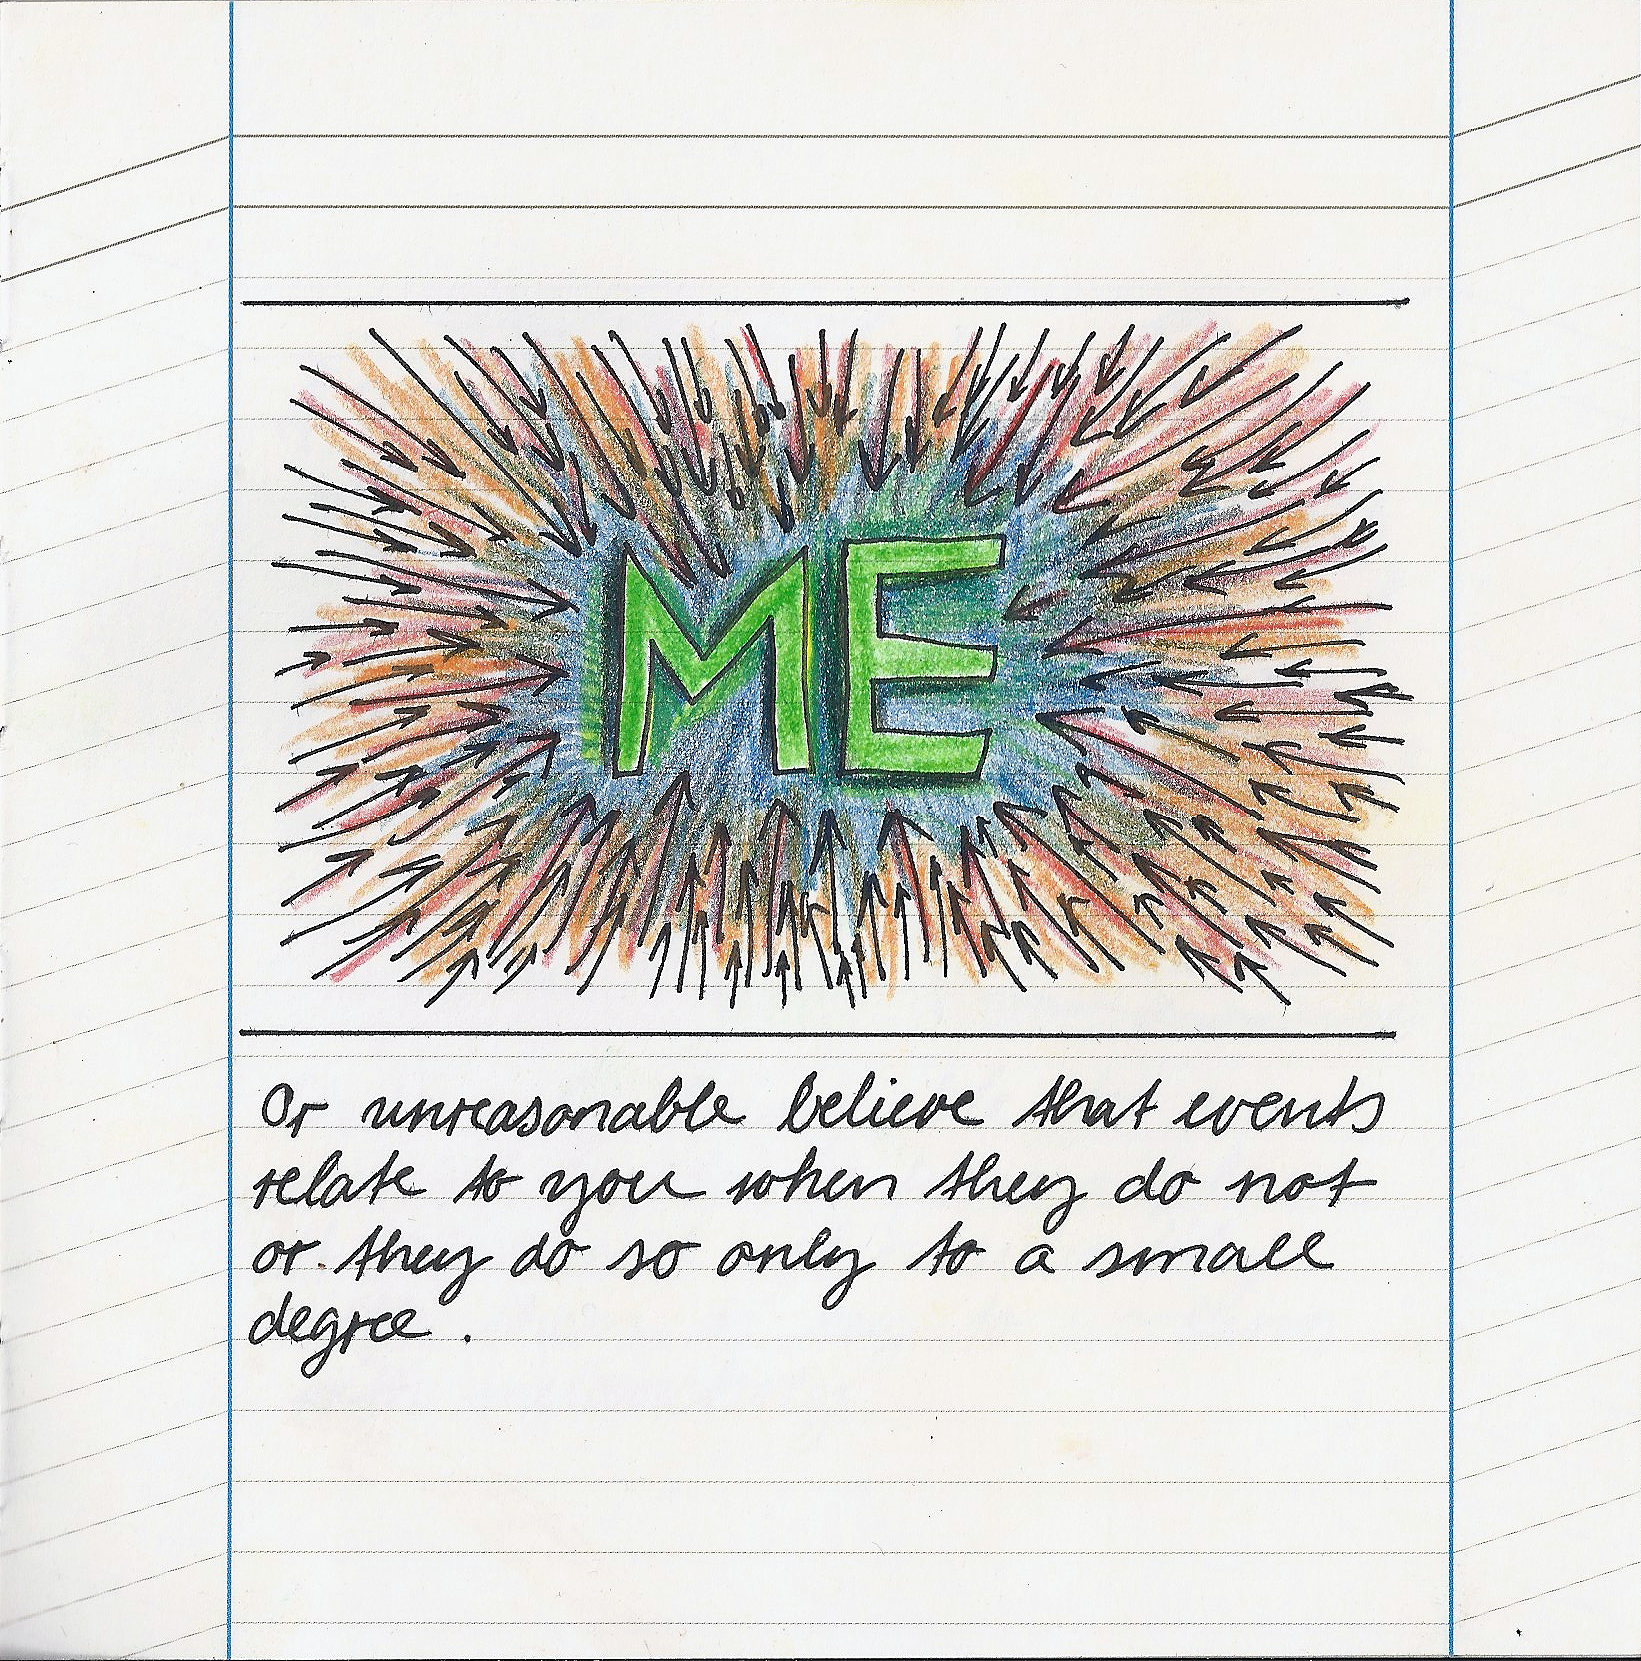 ME
Or unreasonable believe that events
relate to you when they do not
or they do so only to a small
degree.